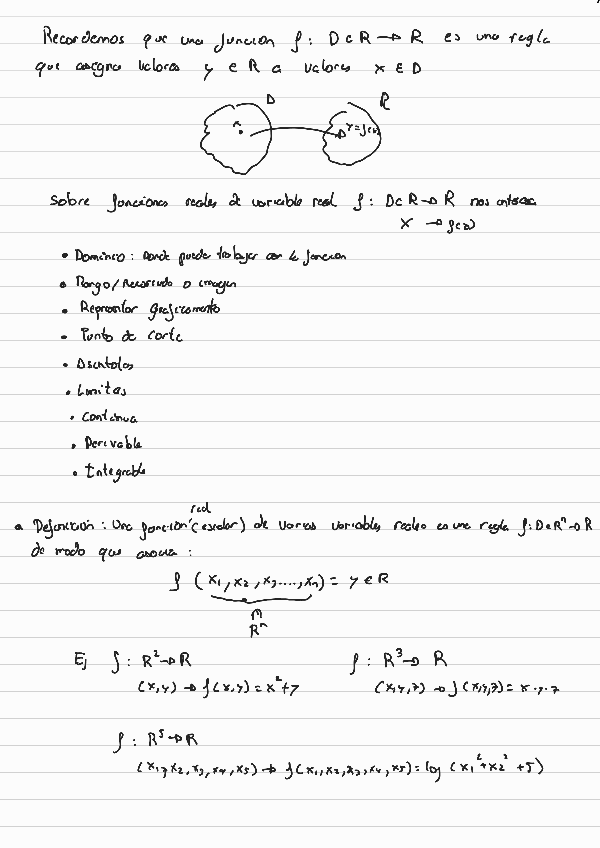 Recordemos que una funcion f: D ⊂ R → R es una regla
que asigna valores y ∈ R a valores x ∈ D
D R
x y=f(x)
Sobre funciones reales de variable real f: D⊂R→R nos interesa
x → f(x)
• Dominio: donde puedo trabajar con la funcion
• Rango/Recorrido o imagen
• Representar graficamente
• Punto de corte
• Asintotas
• Limites
• Continua
• Derivable
• Integrable
real
• Definicion: Una funcion (escalar) de varias variables reales es una regla f: D⊂Rⁿ→R
de modo que asocia:
f (x₁, x₂, x₃, ...., xₙ) = y ∈ R
∩
Rⁿ
Ej f: R²→R f: R³→ R
(x,y) → f(x,y) = x²+y (x,y,z) → f(x,y,z) = x·y·z
f: R⁵→R
(x₁, x₂, x₃, x₄, x₅) → f(x₁, x₂, x₃, x₄, x₅) = log (x₁²+x₂²+5)